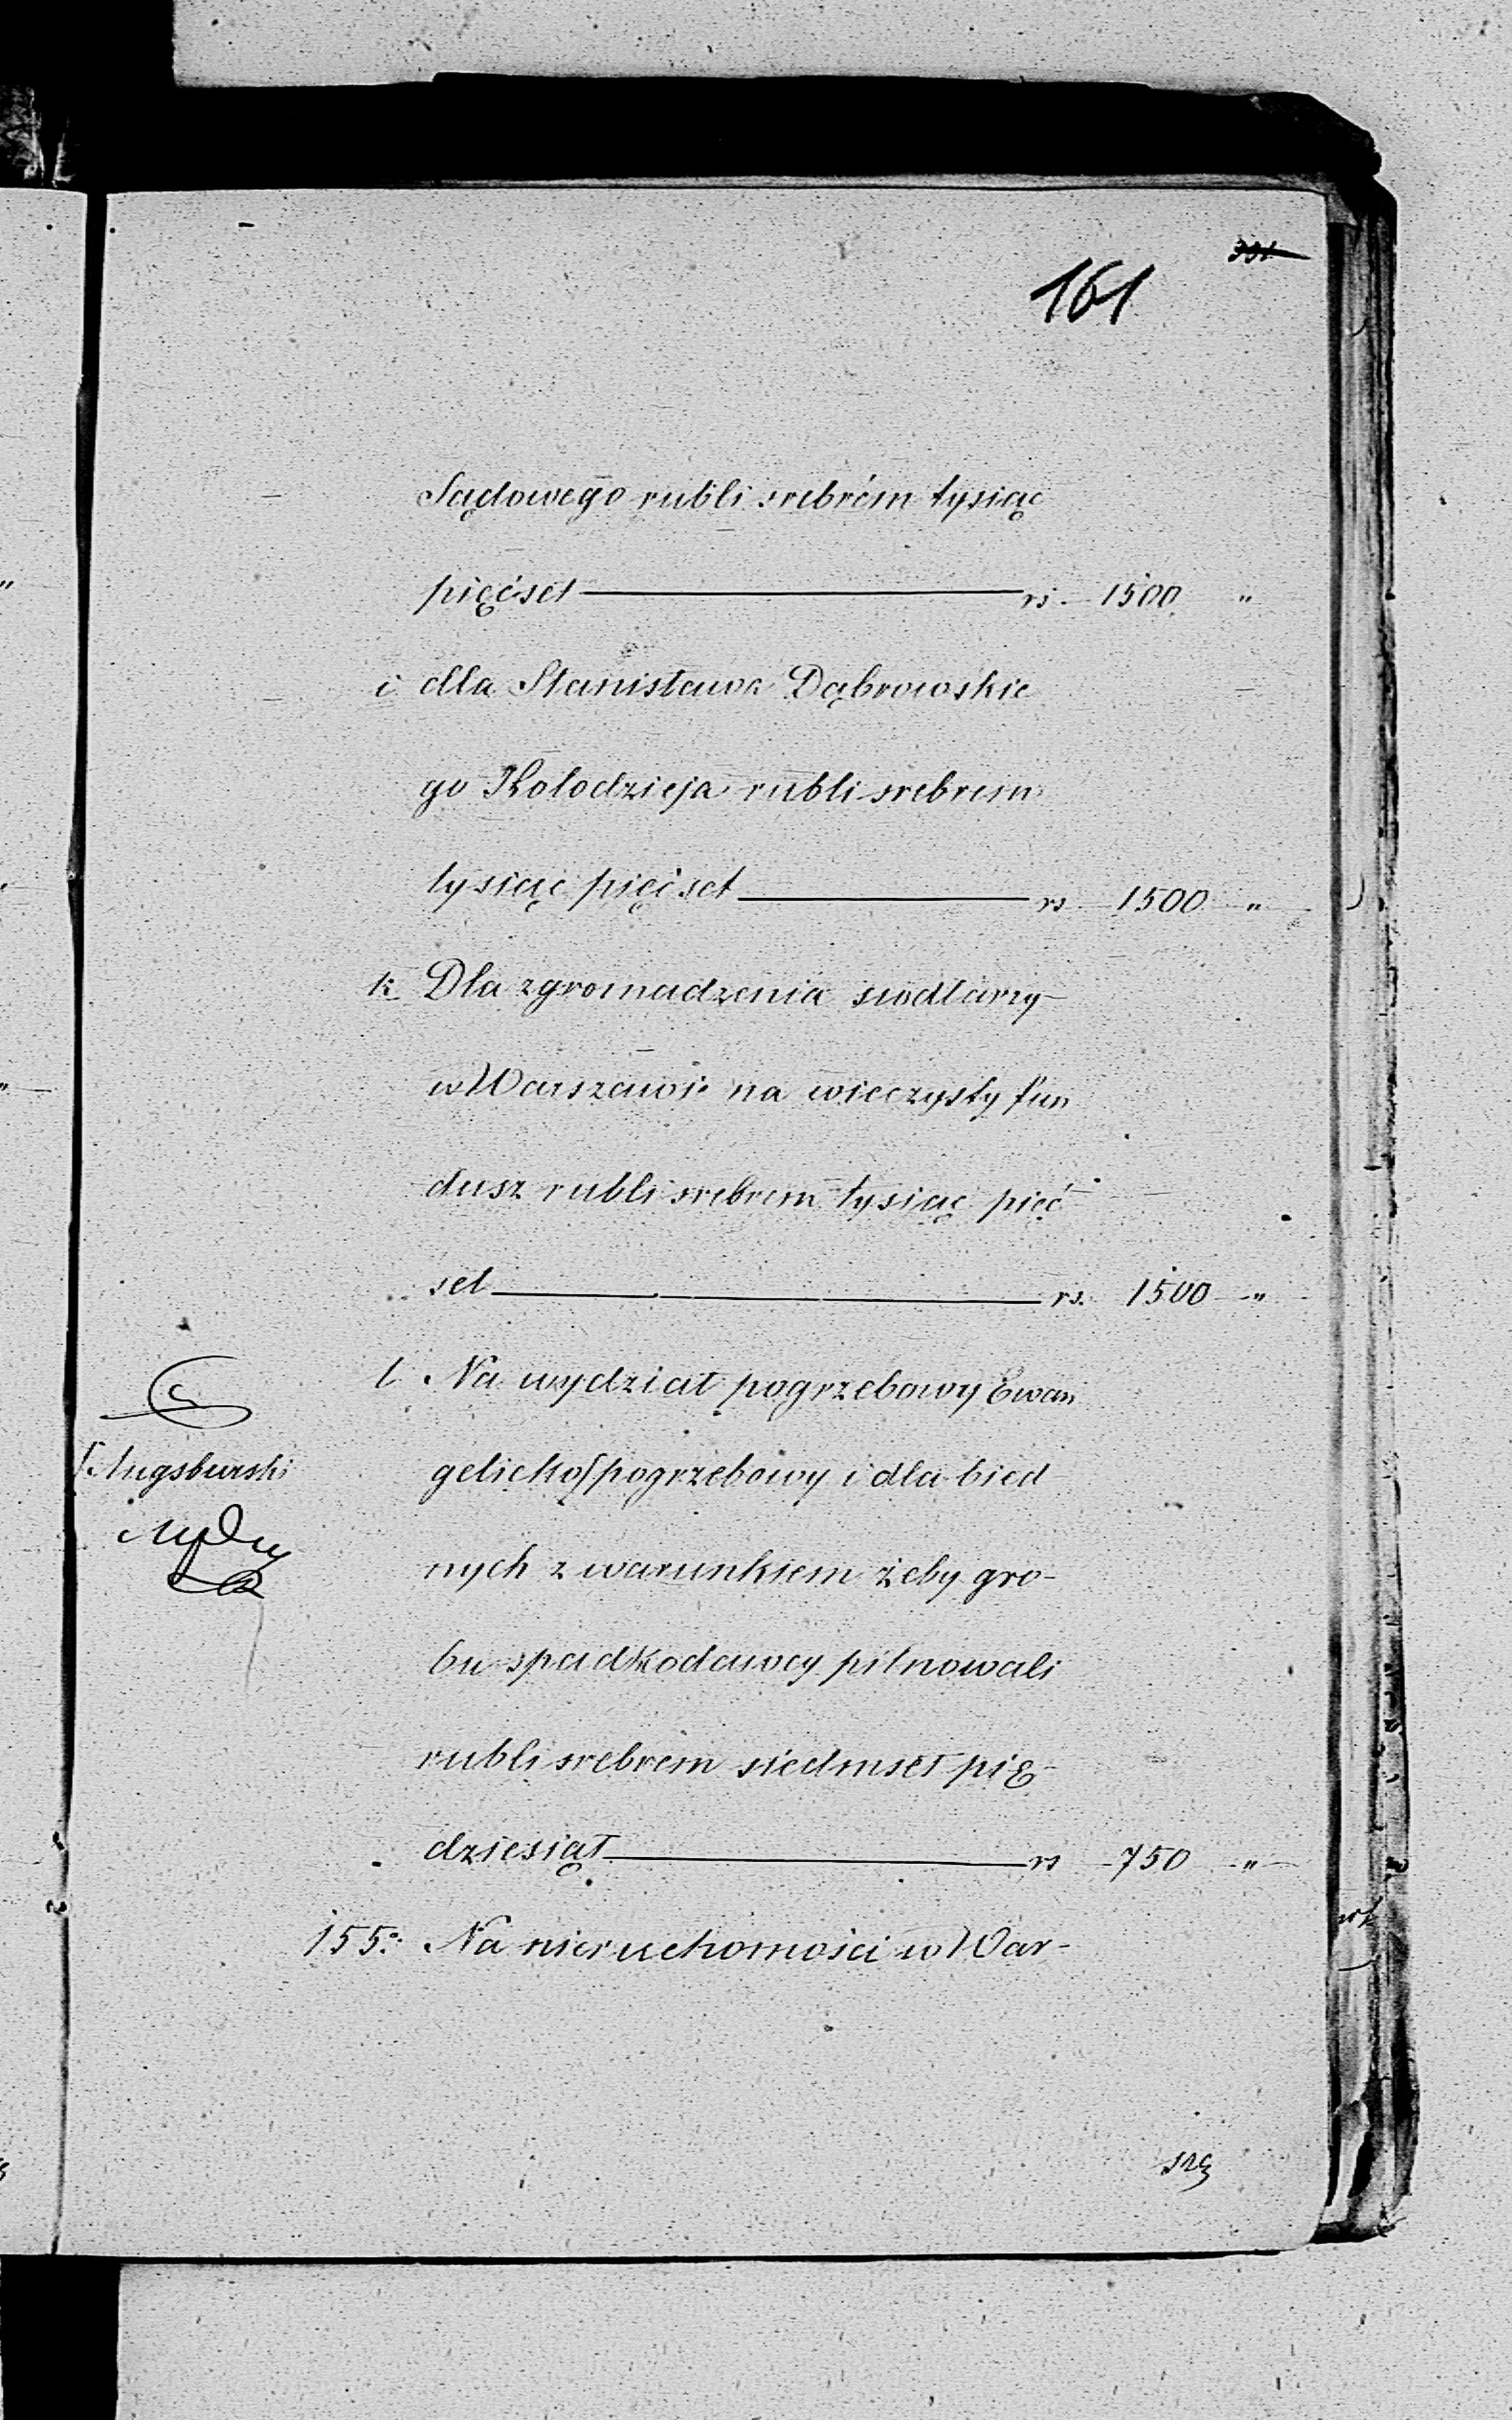 161
Sądowego rubli srebrem tysiąc
pięćset rs. 1500 "
i dla Stanisława Dąbrowskie
go Kołodzieja rubli srebrem
tysiąc pięćset rs 1500 "
k Dla zgromadzenia siodlarzy
w Warszawie na wieczysty fun
dusz rubli srebrem tysiąc pięć
set rs. 1500 "
l Na wydział pogrzebowy Ewan
gelicko pogrzebowy i dla bied
Augsburski
nych z warunkiem żeby gro-
bu spadkodawcy pilnowali
rubli srebrem siedmset pię-
dziesiąt rs 750 "
155. Na nieruchomości w War-
szę